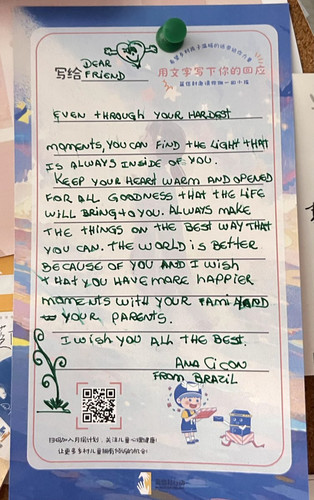 DEAR
写给 FRIEND
用文字写下你的回应
EVEN THROUGH YOUR HARDEST
MOMENTS, YOU CAN FIND THE LIGHT THAT
IS ALWAYS INSIDE OF YOU.
KEEP YOUR HEART WARM AND OPENED
FOR ALL GOODNESS THAT THE LIFE
WILL BRING TO YOU. ALWAYS MAKE
THE THINGS ON THE BEST WAY THAT
YOU CAN. THE WORLD IS BETTER
BECAUSE OF YOU AND I WISH
THAT YOU HAVE MORE HAPPIER
MOMENTS WITH YOUR FAMI AND
YOUR PARENTS.
I WISH YOU ALL THE BEST.
ANA CICON
FROM BRAZIL
扫码加入月捐计划，关注儿童心理健康！
让更多乡村儿童拥有